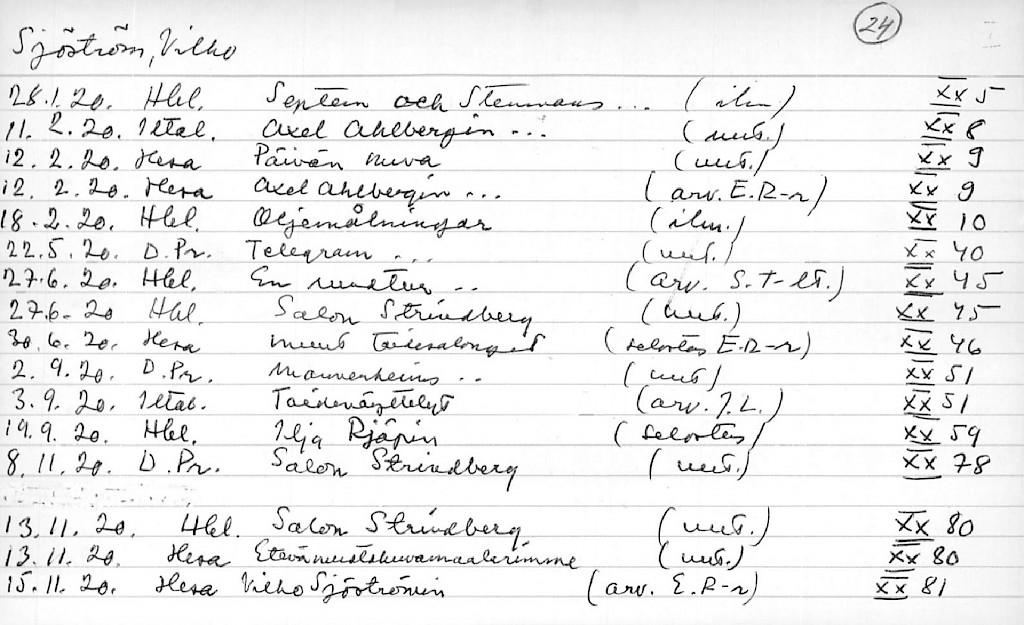 24
Sjöström, Vilho
28.1.20. Hbl. Septem och Stenmans ... (ilm.) XX 5
11.2.20. Iltal. Axel Ahlbergin ... (uut.) XX 8
12.2.20. Hesa Päivän kuva (uut.) XX 9
12.2.20. Hesa Axel Ahlbergin ... (arv. E.R-r) XX 9
18.2.20. Hbl. Oljemålningar (ilm.) XX 10
22.5.20. D.Pr. Telegram ... (uut.) XX 40
27.6.20. Hbl. En rundtur .. (arv. S.T-lt.) XX 45
27.6-20 Hbl. Salon Strindberg (uut.) XX 45
30.6.20. Hesa muut Taidesalongit (selostus E.R-r) XX 46
2.9.20. D.Pr. Mannerheims .. (uut) XX 51
3.9.20. Iltal. Taidenäyttelyt (arv. J.L.) XX 51
19.9.20. Hbl. Ilja Rjäpin (selostus) XX 59
8.11.20. D.Pr. Salon Strindberg (uut.) XX 78
13.11.20. Hbl. Salon Strindberg (uut.) XX 80
13.11.20. Hesa Etevin muotokuvamaalarimme (uut.) XX 80
15.11.20. Hesa Vilho Sjöströmin (arv. E.R-r) XX 81